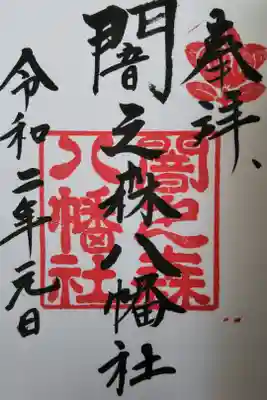 奉拝、
闇之森八幡社
令和二年元日
闇之森
八幡社